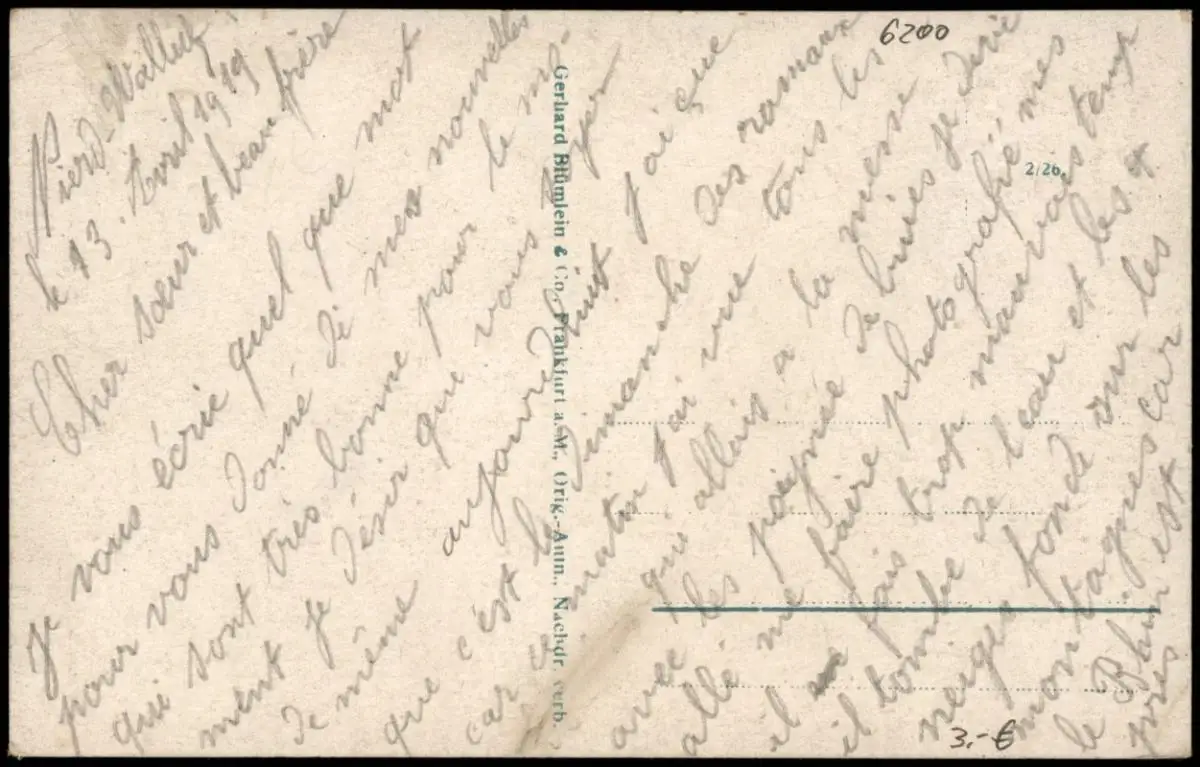 Nierd-Walluf
le 13 Avril 1919
Cher sœur et beau frère
Je vous écrie quel que mot
pour vous donné de mes nouvelles
qui sont très bonne pour le mo-
ment je désir que vous
de même aujourd'huit j'ai çue
que c'est le dimanche des romaux
car ce matin j'ai vue tous les
qui allais a la messe
avec les poignée de buies je devie
allé me faire photografié mes
il fais trop mauvais temp
il tombe de l'eau et les et
neiges fonde sur les
montagnes car
le Rhin est
près
Gerhard Blümlein & Co., Frankfurt a.-M., Orig.-Aufn., Nachdr. verb.
6200
2/26.
3.- €